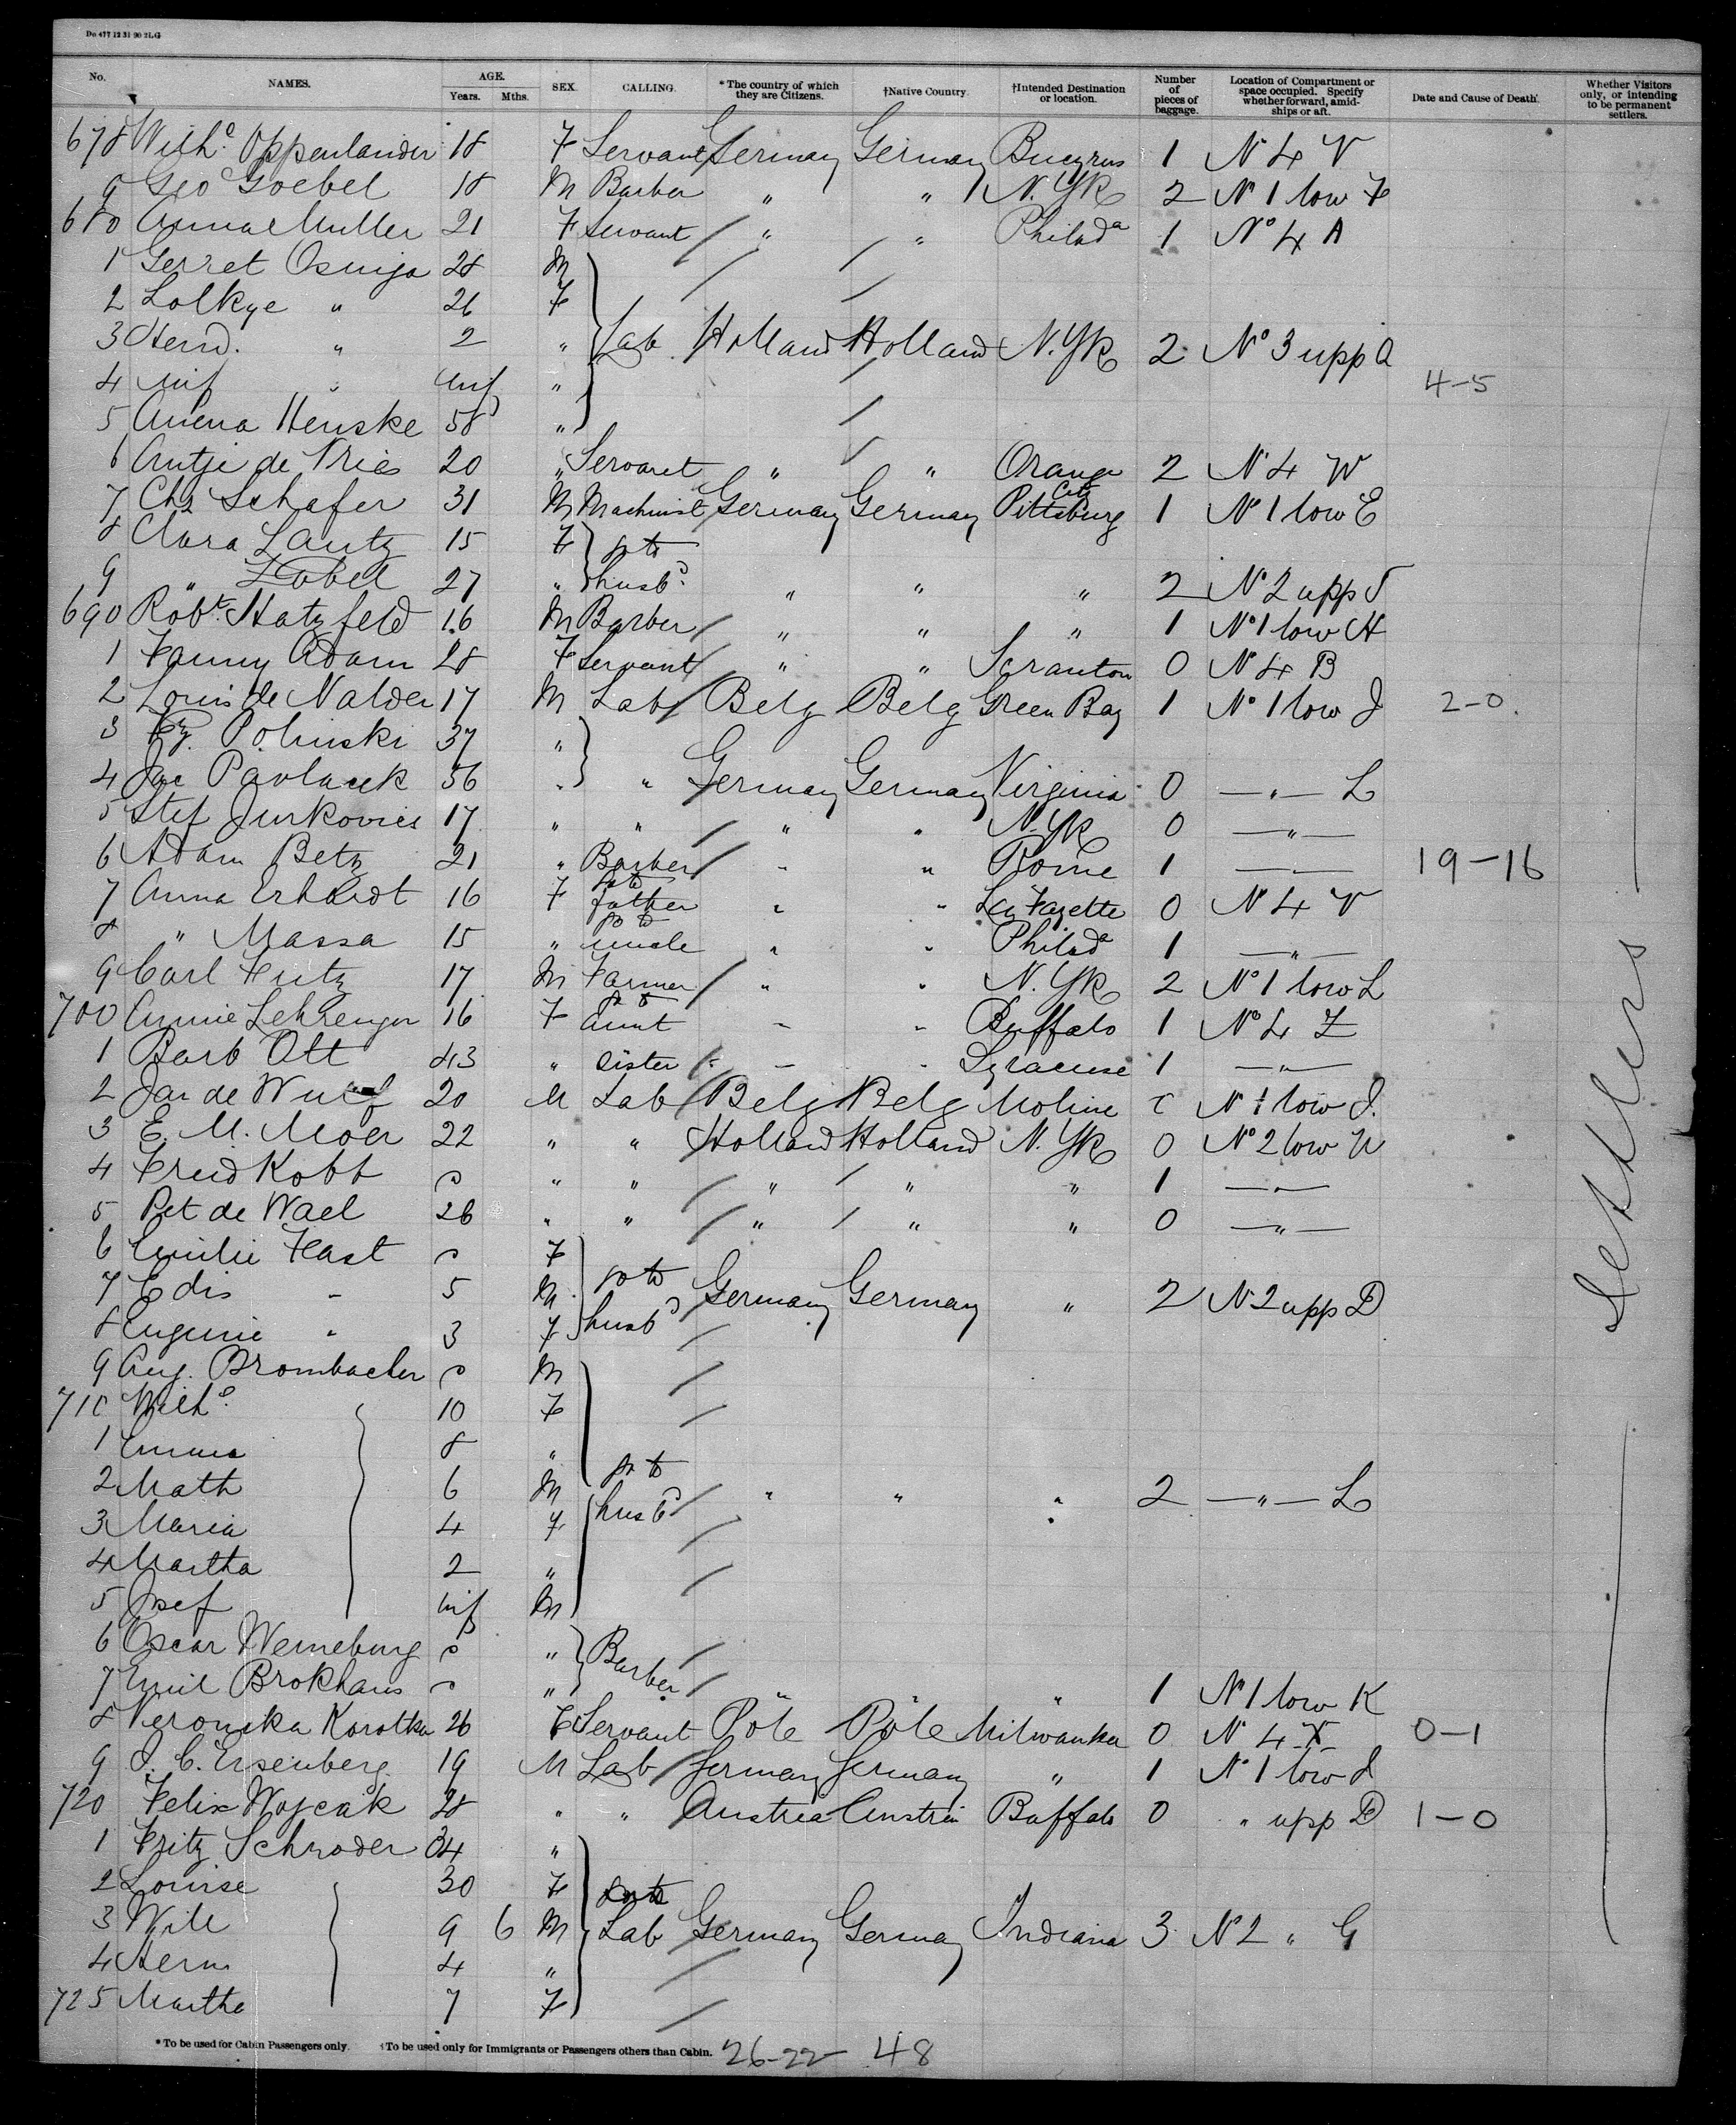 Do 477 12 31 90 2LG
No. NAMES. AGE. Years. Mths. SEX. CALLING. *The country of which they are Citizens. †Native Country. †Intended Destination or location. Number of pieces of baggage. Location of Compartment or space occupied. Specify whether forward, amidships or aft. Date and Cause of Death. Whether Visitors only, or intending to be permanent settlers.
678 Wilhe. Oppenlander 18 F Servant Germany Germany Bucyrus 1 No 4 V
9 Geo Goebel 18 M Barber " " N.Yk 2 No 1 low F
680 Anna Muller 21 F Servant " " Philada 1 No 4 A
1 Gerret Osinga 28 M
2 Lolkye " 26 F
3 Hend. " 2 " Lab Holland Holland N.Yk 2 No 3 upp Q
4 inf " inf " 4-5
5 Anena Henske 58 "
6 Antje de Vries 20 " Servant " " Orange City 2 No 4 W
7 Chs Schafer 31 M Machinist Germany Germany Pittsburg 1 No 1 low E
8 Clara Lautz 15 F go to
9 " Zobel 27 " husbd. " " " 2 No 2 upp S
690 Robt. Hatzfeld 16 M Barber " " " 1 No 1 low H
1 Fanny Adam 28 F Servant " " Scranton 0 No 4 B
2 Louis de Nalder 17 M Lab Belg Belg Green Bay 1 No 1 low J 2-0.
3 Polinski 37 "
4 Jac Pavlacek 56 " " Germany Germany Virginia 0 —"— L
5 Stef Jurkovics 17 " " " " N.Yk 0 —"—
6 Adam Betz 21 " Barber " " Rome 1 —"— 19-16
7 Anna Erhardt 16 F go to father " " La Fayette 0 No 4 V
8 " Massa 15 " go to uncle " " Philada 1 —"—
9 Carl Futz 17 M Farmer " " N.Yk 2 No 1 low L
700 Annie Lehrenger 16 F go to aunt " " Buffalo 1 No 4 Z
1 Barb Ott 43 " sister " " Syracuse 1 —"—
2 Jan de Wulf 20 M Lab Belg Belg Moline No 1 low J.
3 E. M. Moer 22 " " Holland Holland N.Yk 0 No 2 low U
4 Fred Kobb " " " " " 1 —"—
5 Pet de Wael 26 " " " " " 0 —"—
6 Emilie Fast F
7 Edis " 5 M go to husbd Germany Germany " 2 No 2 upp D
8 Eugenie " 3 F
9 Aug. Brombacher M
710 Wilhe. 10 F
1 Emma 8 "
2 Math 6 M go to husbd " " " 2 —"— L
3 Maria 4 F
4 Martha 2 "
5 Josef inf M
6 Oscar Werneburg " Barber
7 Emil Brokhaus " " " " 1 No 1 low K
8 Veronika Korotka 26 F Servant Pole Pole Milwaukee 0 No 4 X 0-1
9 J. C. Ersenberg 19 M Lab Germany Germany " 1 No 1 low J
720 Felix Wojcak 28 " " Austria Austria Buffalo 0 " upp D 1-0
1 Fritz Schroder 34 "
2 Louise 30 F
3 Will 9 6 M Lab Germany Germany Indiana 3 No 2 " G
4 Herm 4 "
725 Martha 7 F
Settlers
*To be used for Cabin Passengers only. †To be used only for Immigrants or Passengers others than Cabin. 26-22 48